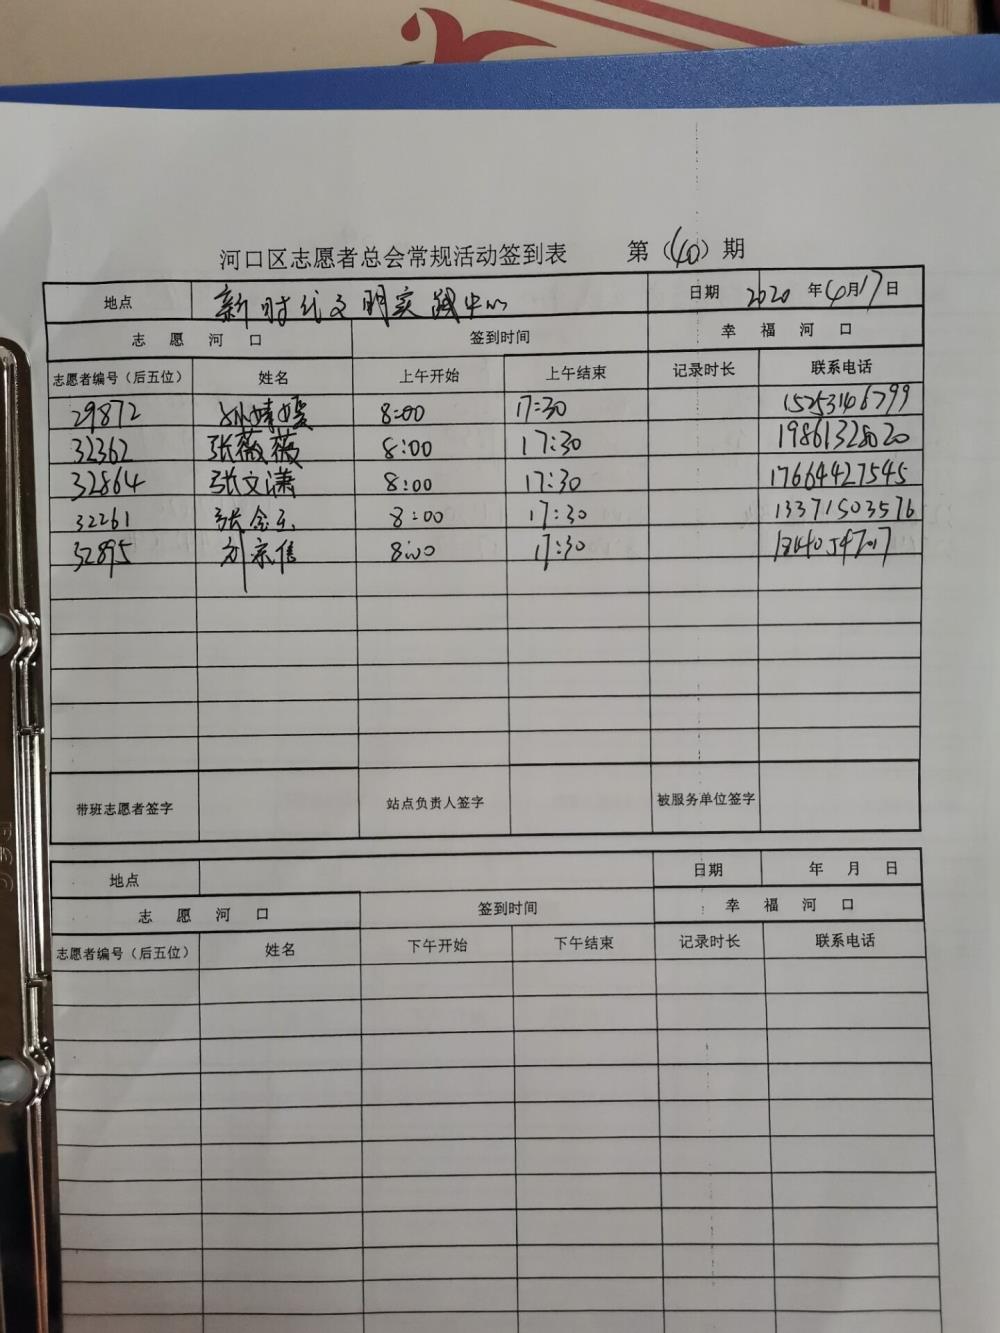 河口区志愿者总会常规活动签到表 第（40）期
地点 新时代文明实践中心 日期 2020 年 4 月 17 日
志 愿 河 口 签到时间 幸 福 河 口
志愿者编号（后五位） 姓名 上午开始 上午结束 记录时长 联系电话
29872 孙婧媛 8:00 17:30 15253146799
32362 张薇薇 8:00 17:30 19861328020
32864 张文潇 8:00 17:30 17664427545
32261 张金玉 8:00 17:30 13371503576
32895 刘宗信 8:00 17:30
带班志愿者签字 站点负责人签字 被服务单位签字
地点 日期 年 月 日
志 愿 河 口 签到时间 幸 福 河 口
志愿者编号（后五位） 姓名 下午开始 下午结束 记录时长 联系电话